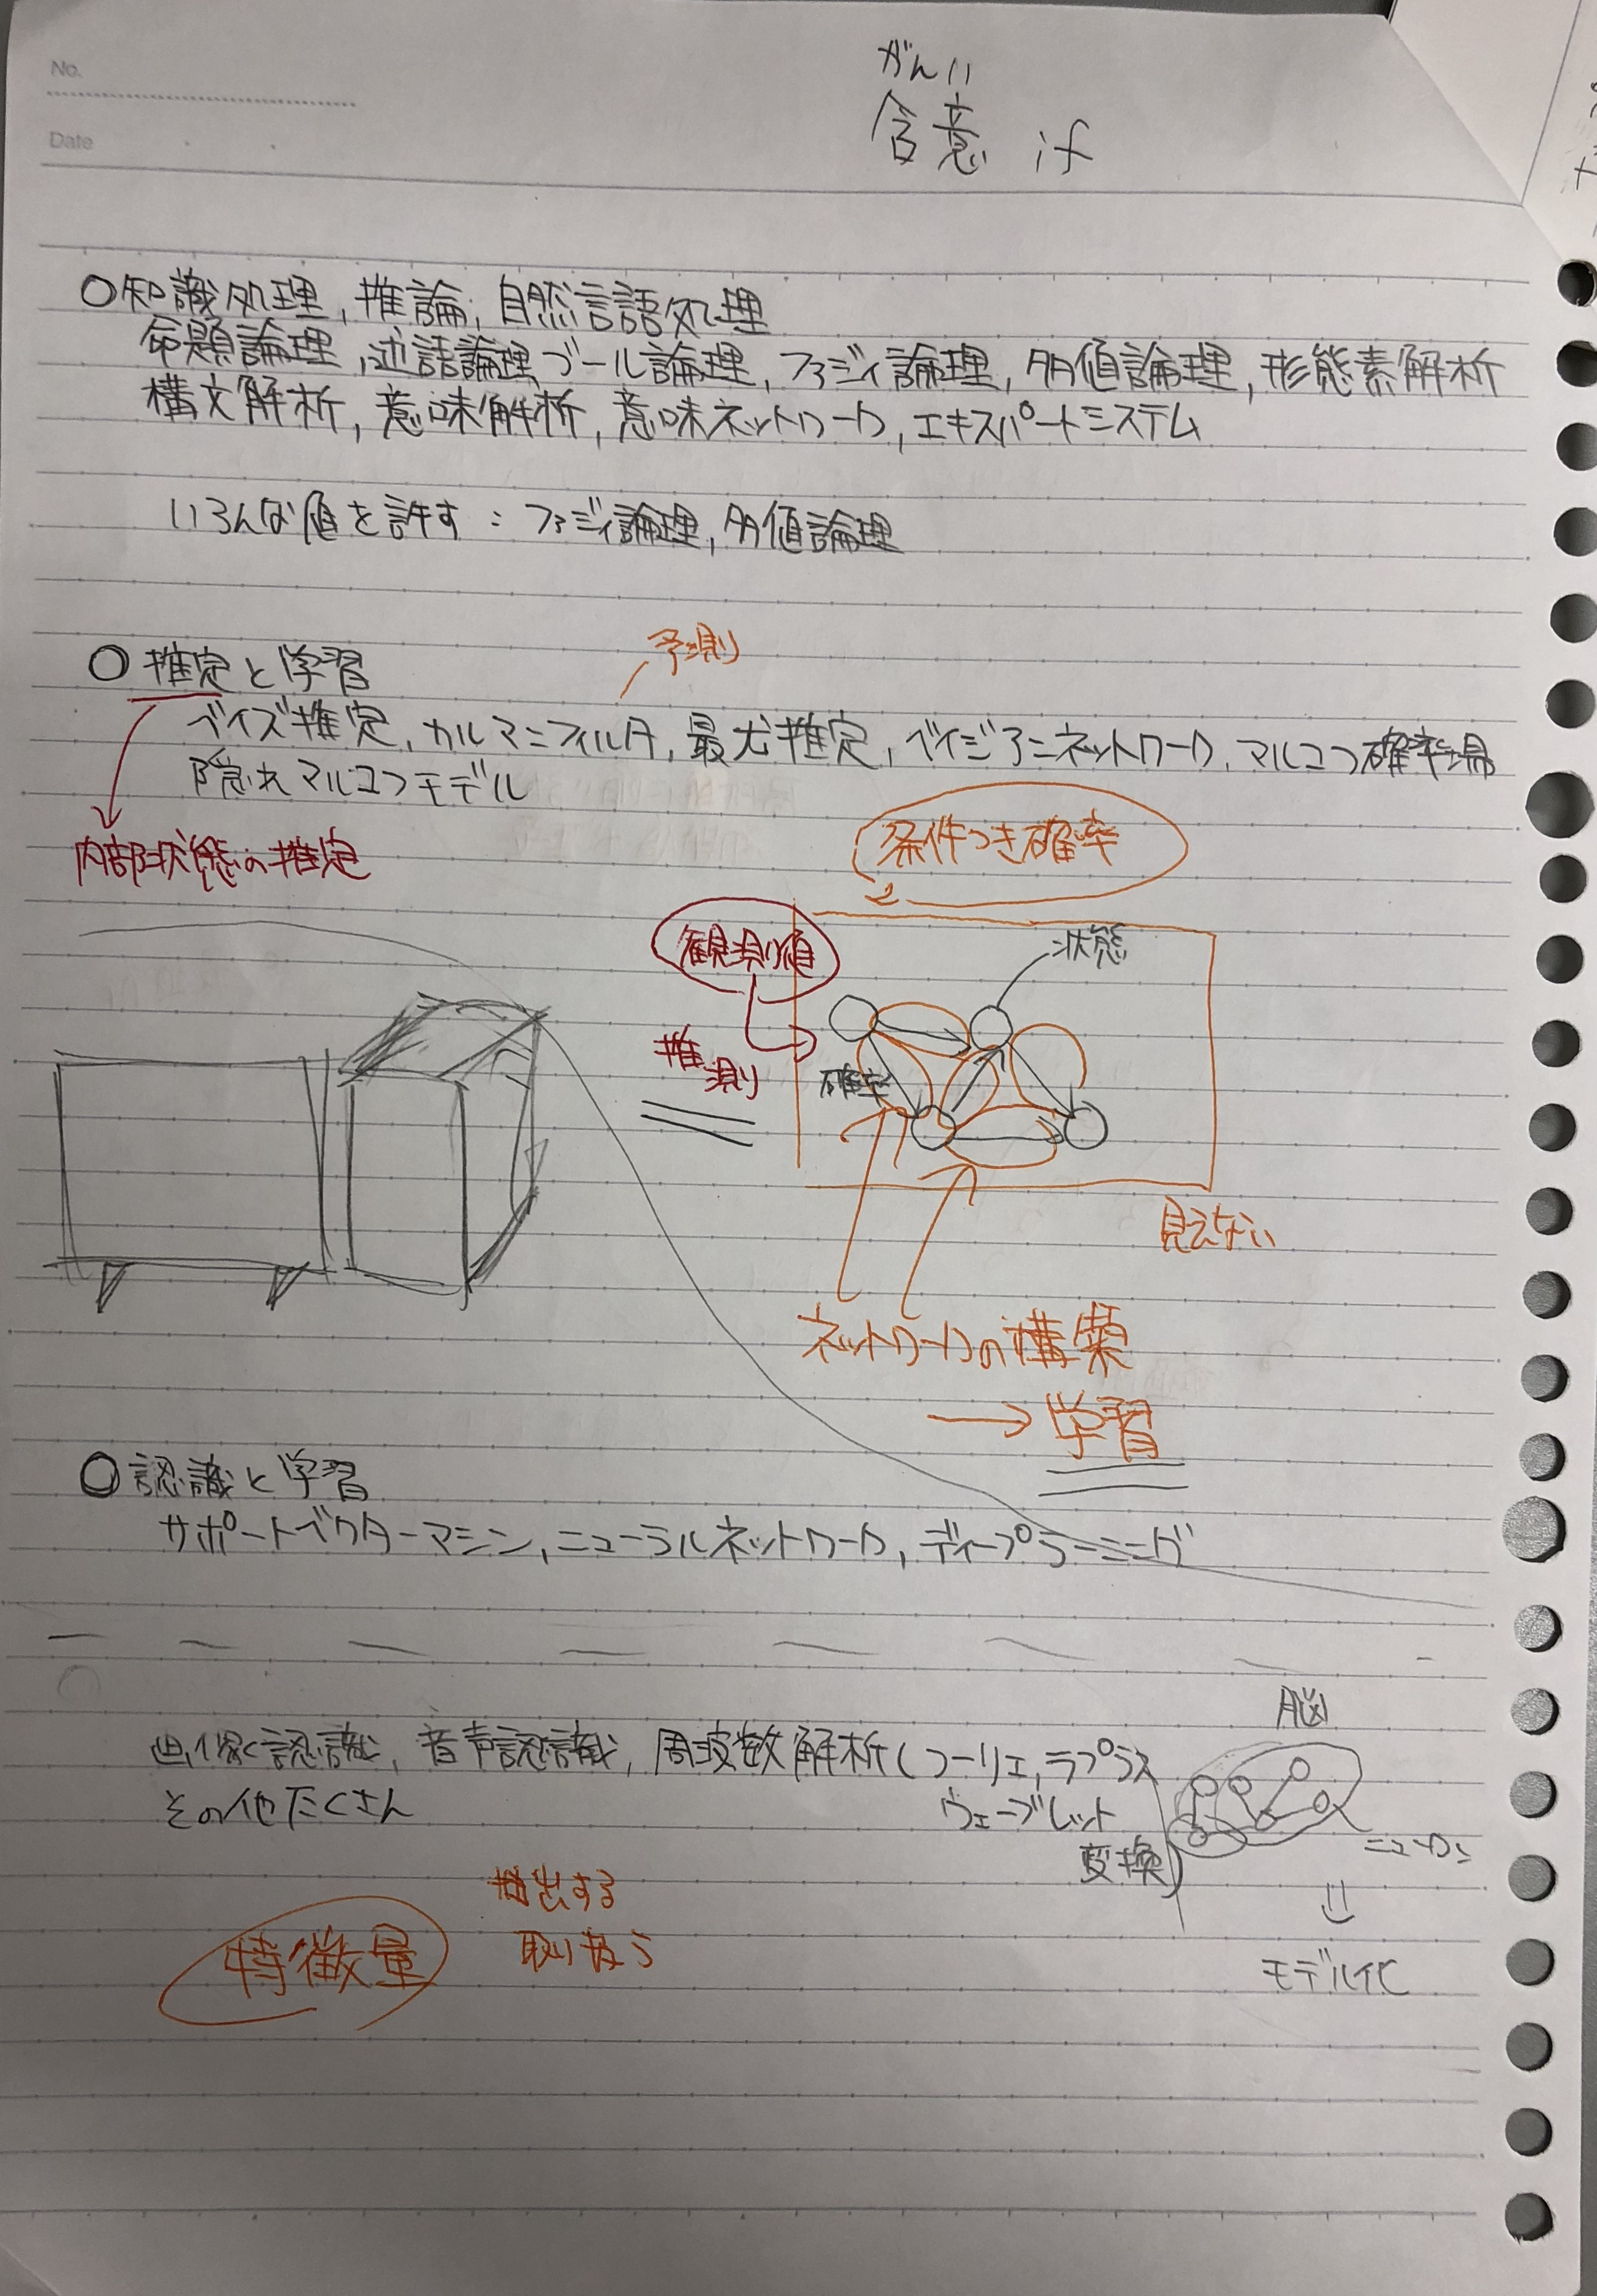 No.
Date
がんい
含意 if
○知識処理, 推論, 自然言語処理
命題論理, 述語論理 ブール論理, ファジィ論理, 多値論理, 形態素解析
構文解析, 意味解析, 意味ネットワーク, エキスパートシステム
いろんな値を許す : ファジィ論理, 多値論理
○ 推定と学習
予測
ベイズ推定, カルマンフィルタ, 最尤推定, ベイジアンネットワーク, マルコフ確率場
隠れマルコフモデル
内部状態の推定
条件つき確率
観測値
状態
推測
確率
見えない
ネットワークの構築
→ 学習
○ 認識と学習
サポートベクターマシン, ニューラルネットワーク, ディープラーニング
脳
画像認識, 音声認識, 周波数解析(フーリエ, ラプラス
その他たくさん
ウェーブレット
変換)
ニューロン
モデル化
抽出する
特徴量
取り扱う